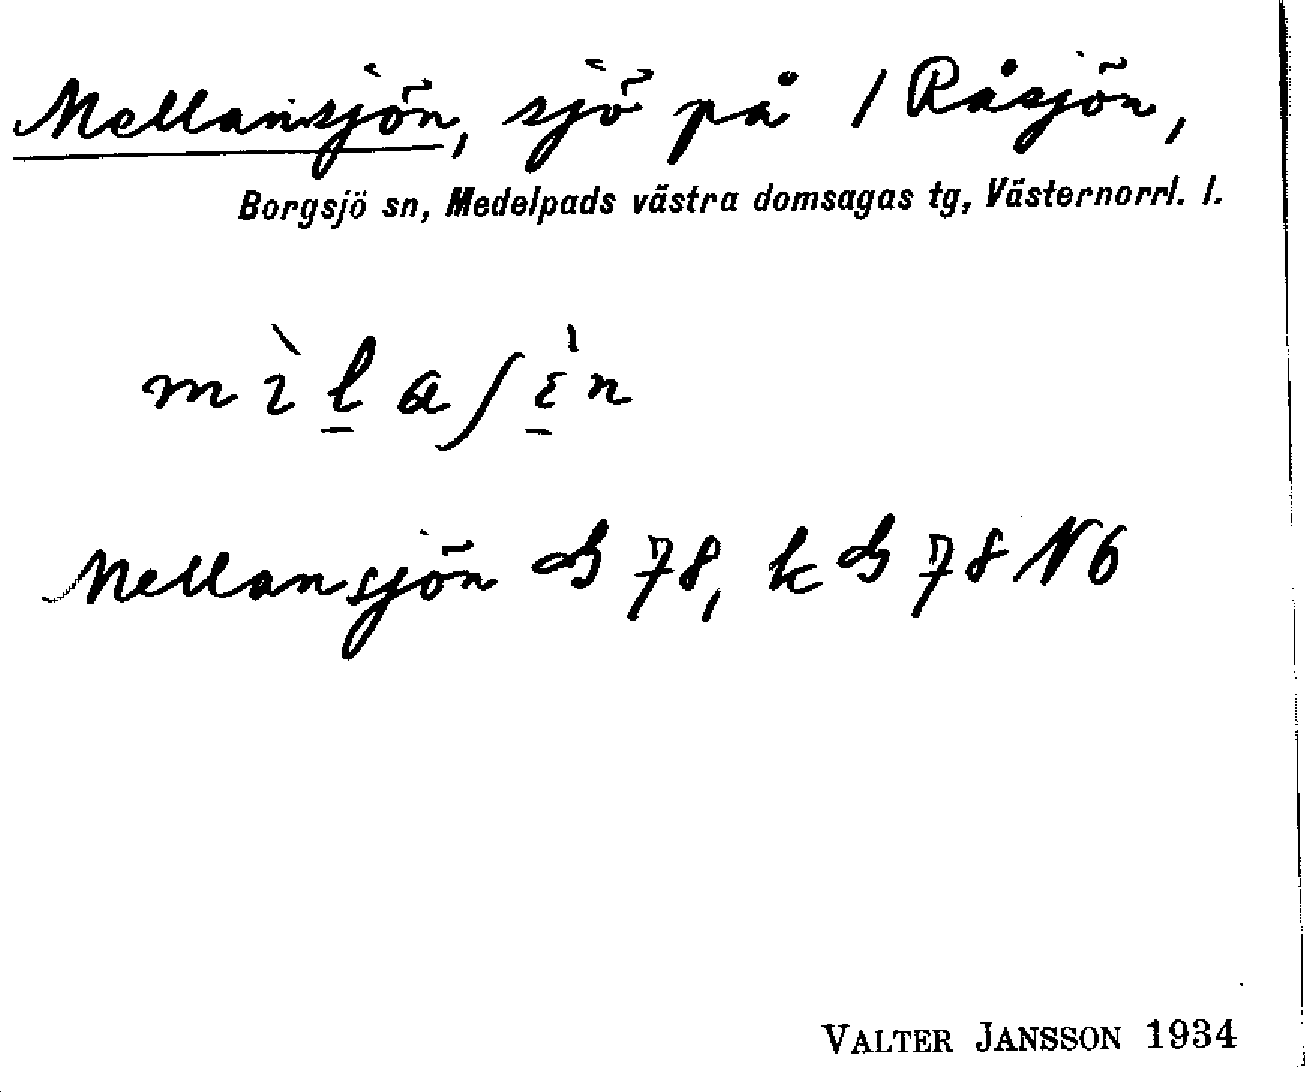 Mellansjön, sjö på 1 Råsjön,
Borgsjö sn, Medelpads västra domsagas tg, Västernorrl. l.
Mellansjön 78, k 78 N6
VALTER JANSSON 1934